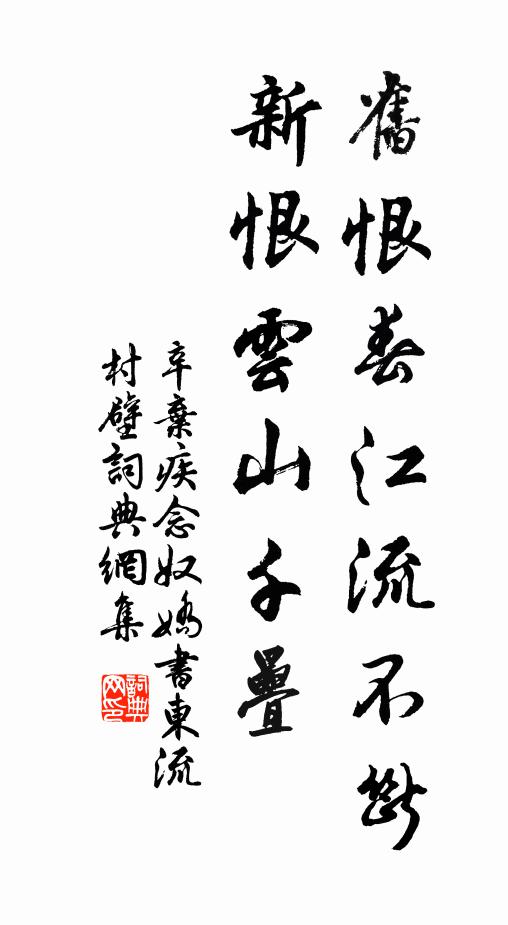 舊恨春江流不斷
新恨雲山千疊
辛棄疾念奴嬌書東流
村壁詞典網集
詞典
网印